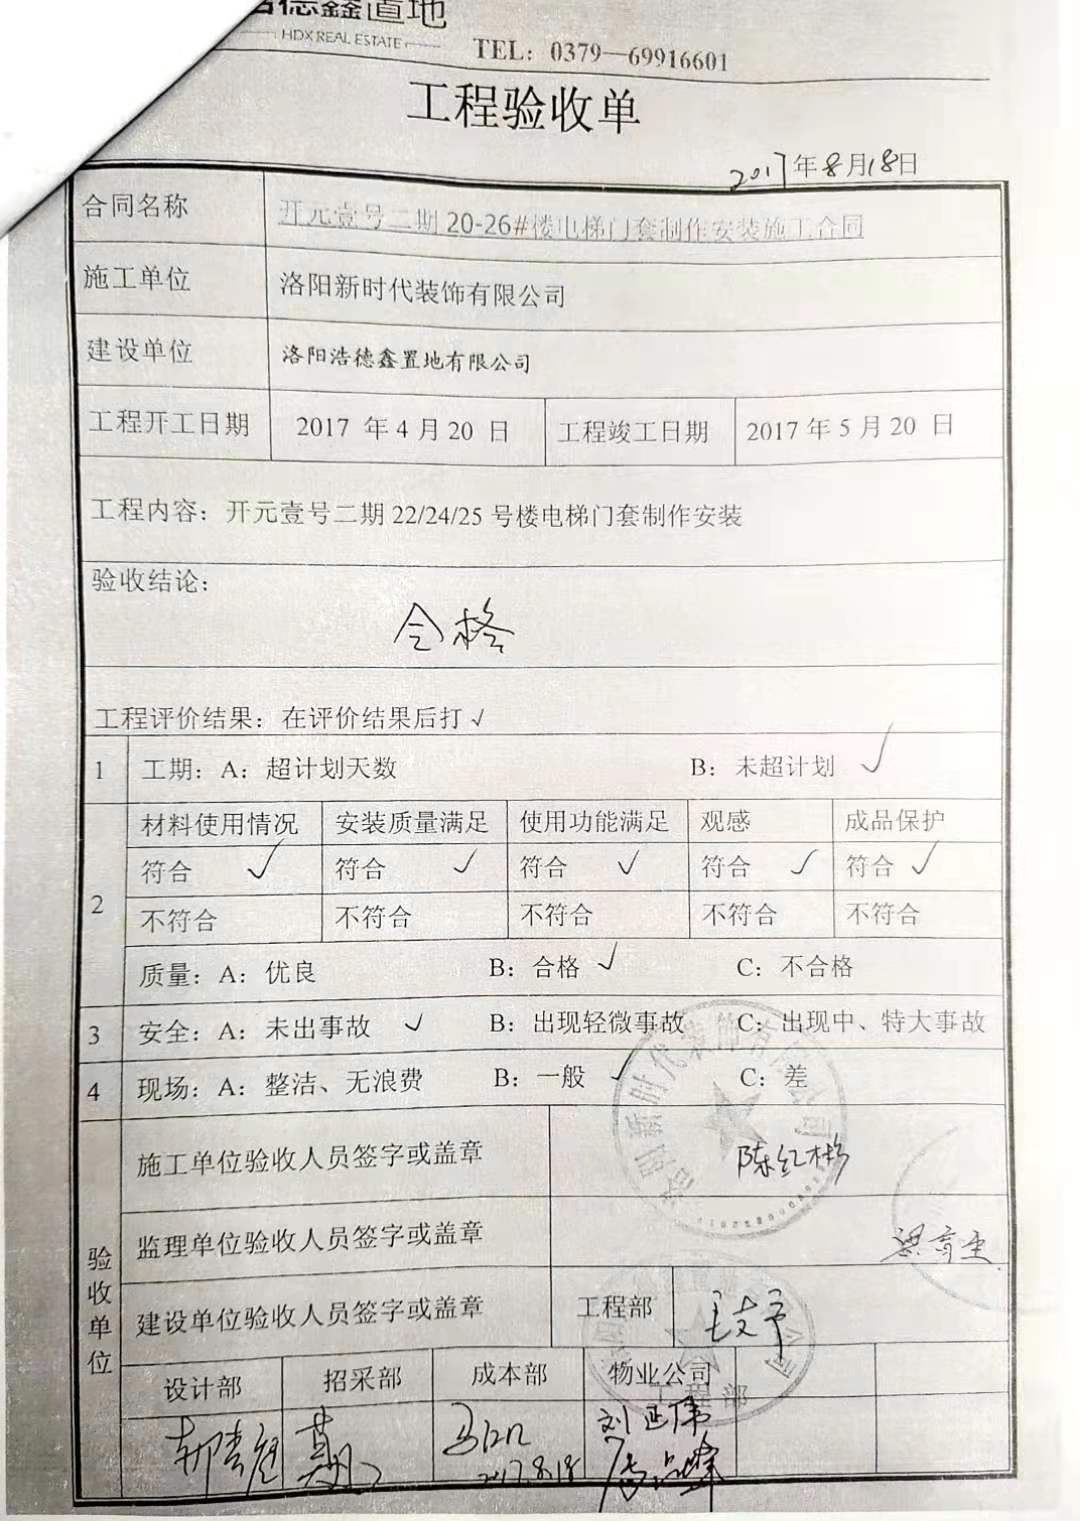 德鑫置地
HDX REAL ESTATE
TEL：0379—69916601
工程验收单
2017年8月18日
合同名称 开元壹号二期 20-26#楼电梯门套制作安装施工合同
施工单位 洛阳新时代装饰有限公司
建设单位 洛阳浩德鑫置地有限公司
工程开工日期 2017 年 4 月 20 日 工程竣工日期 2017 年 5 月 20 日
工程内容：开元壹号二期 22/24/25 号楼电梯门套制作安装
验收结论：
合格
工程评价结果：在评价结果后打 √
1 工期：A：超计划天数 B：未超计划 √
材料使用情况 安装质量满足 使用功能满足 观感 成品保护
符合 √ 符合 √ 符合 √ 符合 √ 符合 √
2
不符合 不符合 不符合 不符合 不符合
质量：A：优良 B：合格 √ C：不合格
3 安全：A：未出事故 √ B：出现轻微事故 C：出现中、特大事故
4 现场：A：整洁、无浪费 B：一般 √ C：差
新时代装饰有限公司
验收单位
施工单位验收人员签字或盖章 陈红彬
监理单位验收人员签字或盖章
建设单位验收人员签字或盖章 工程部
设计部 招采部 成本部 物业公司
工程部
刘延伟
2017.8.18